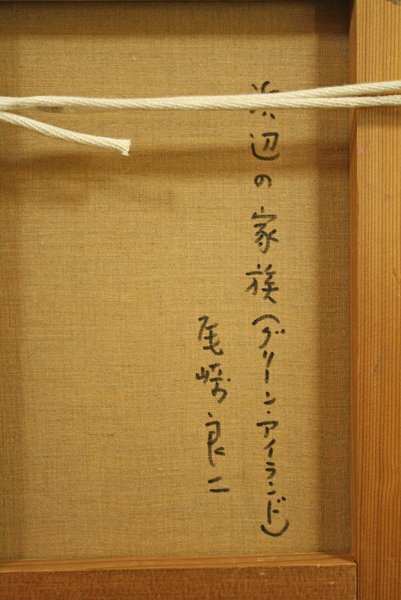 浜辺の家族(グリーン・アイランド)
尾崎良二